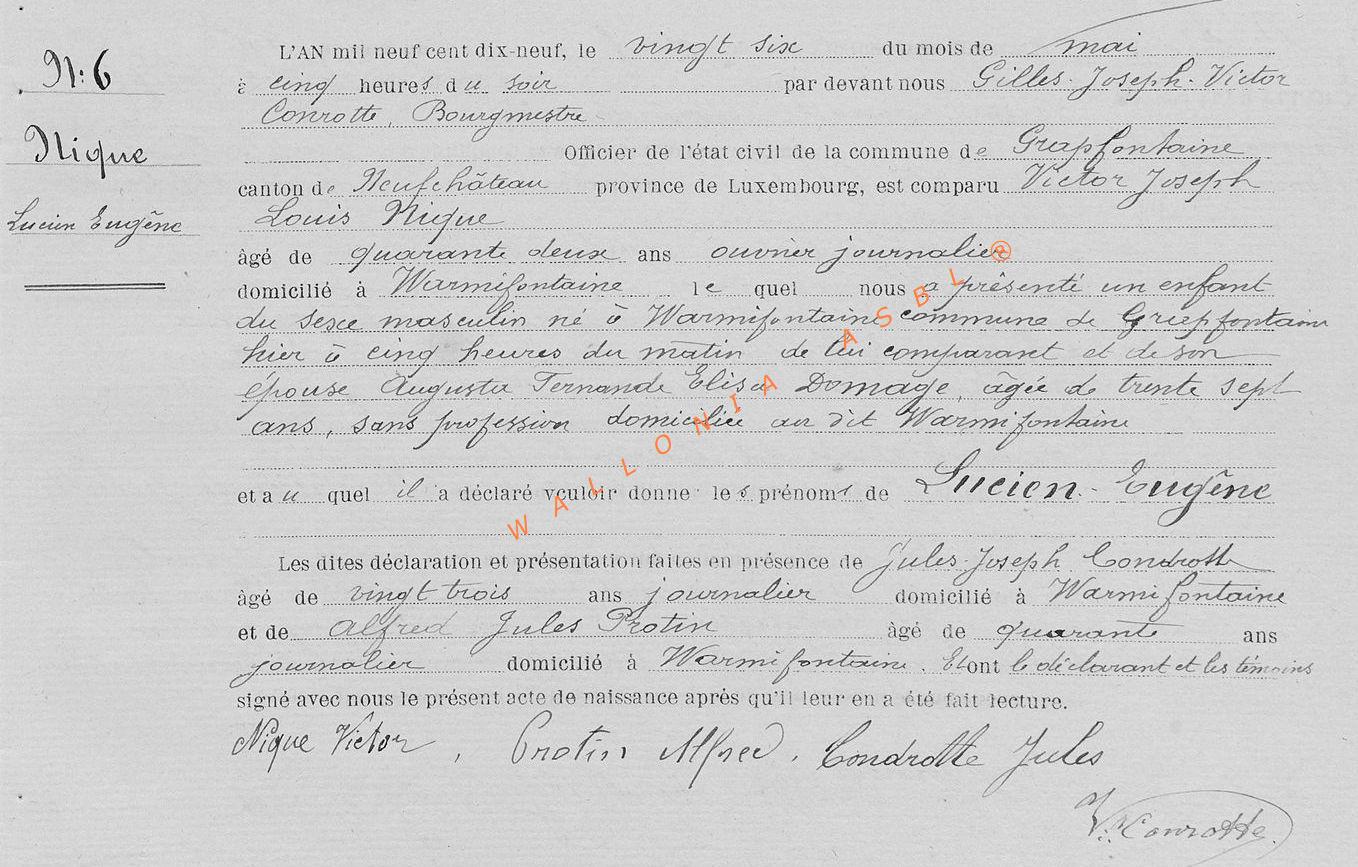 N: 6
Nique
Lucien Eugène
L'AN mil neuf cent dix-neuf, le vingt six du mois de mai
à cinq heures du soir par devant nous Gilles-Joseph-Victor
Conrotte, Bourgmestre
Officier de l'état civil de la commune de Grapfontaine
canton de Neufchâteau province de Luxembourg, est comparu Victor Joseph
Louis Nique
âgé de quarante deux ans ouvrier journalier
domicilié à Warmifontaine lequel nous a présenté un enfant
du sexe masculin né à Warmifontaine commune de Grapfontaine
hier à cinq heures du matin de lui comparant et de son
épouse Augusta Fernande Elisa Domage, âgée de trente sept
ans, sans profession domiciliée au dit Warmifontaine
et au quel il a déclaré vouloir donner les prénoms de Lucien-Eugène
Les dites déclaration et présentation faites en présence de Jules-Joseph Condrotte
âgé de vingt trois ans journalier domicilié à Warmifontaine
et de Alfred Jules Protin âgé de quarante ans
journalier domicilié à Warmifontaine. Et ont le déclarant et les témoins
signé avec nous le présent acte de naissance après qu'il leur en a été fait lecture.
Nique Victor, Protin Alfred, Condrotte Jules
V. Conrotte
WALLONIA ASBL ®